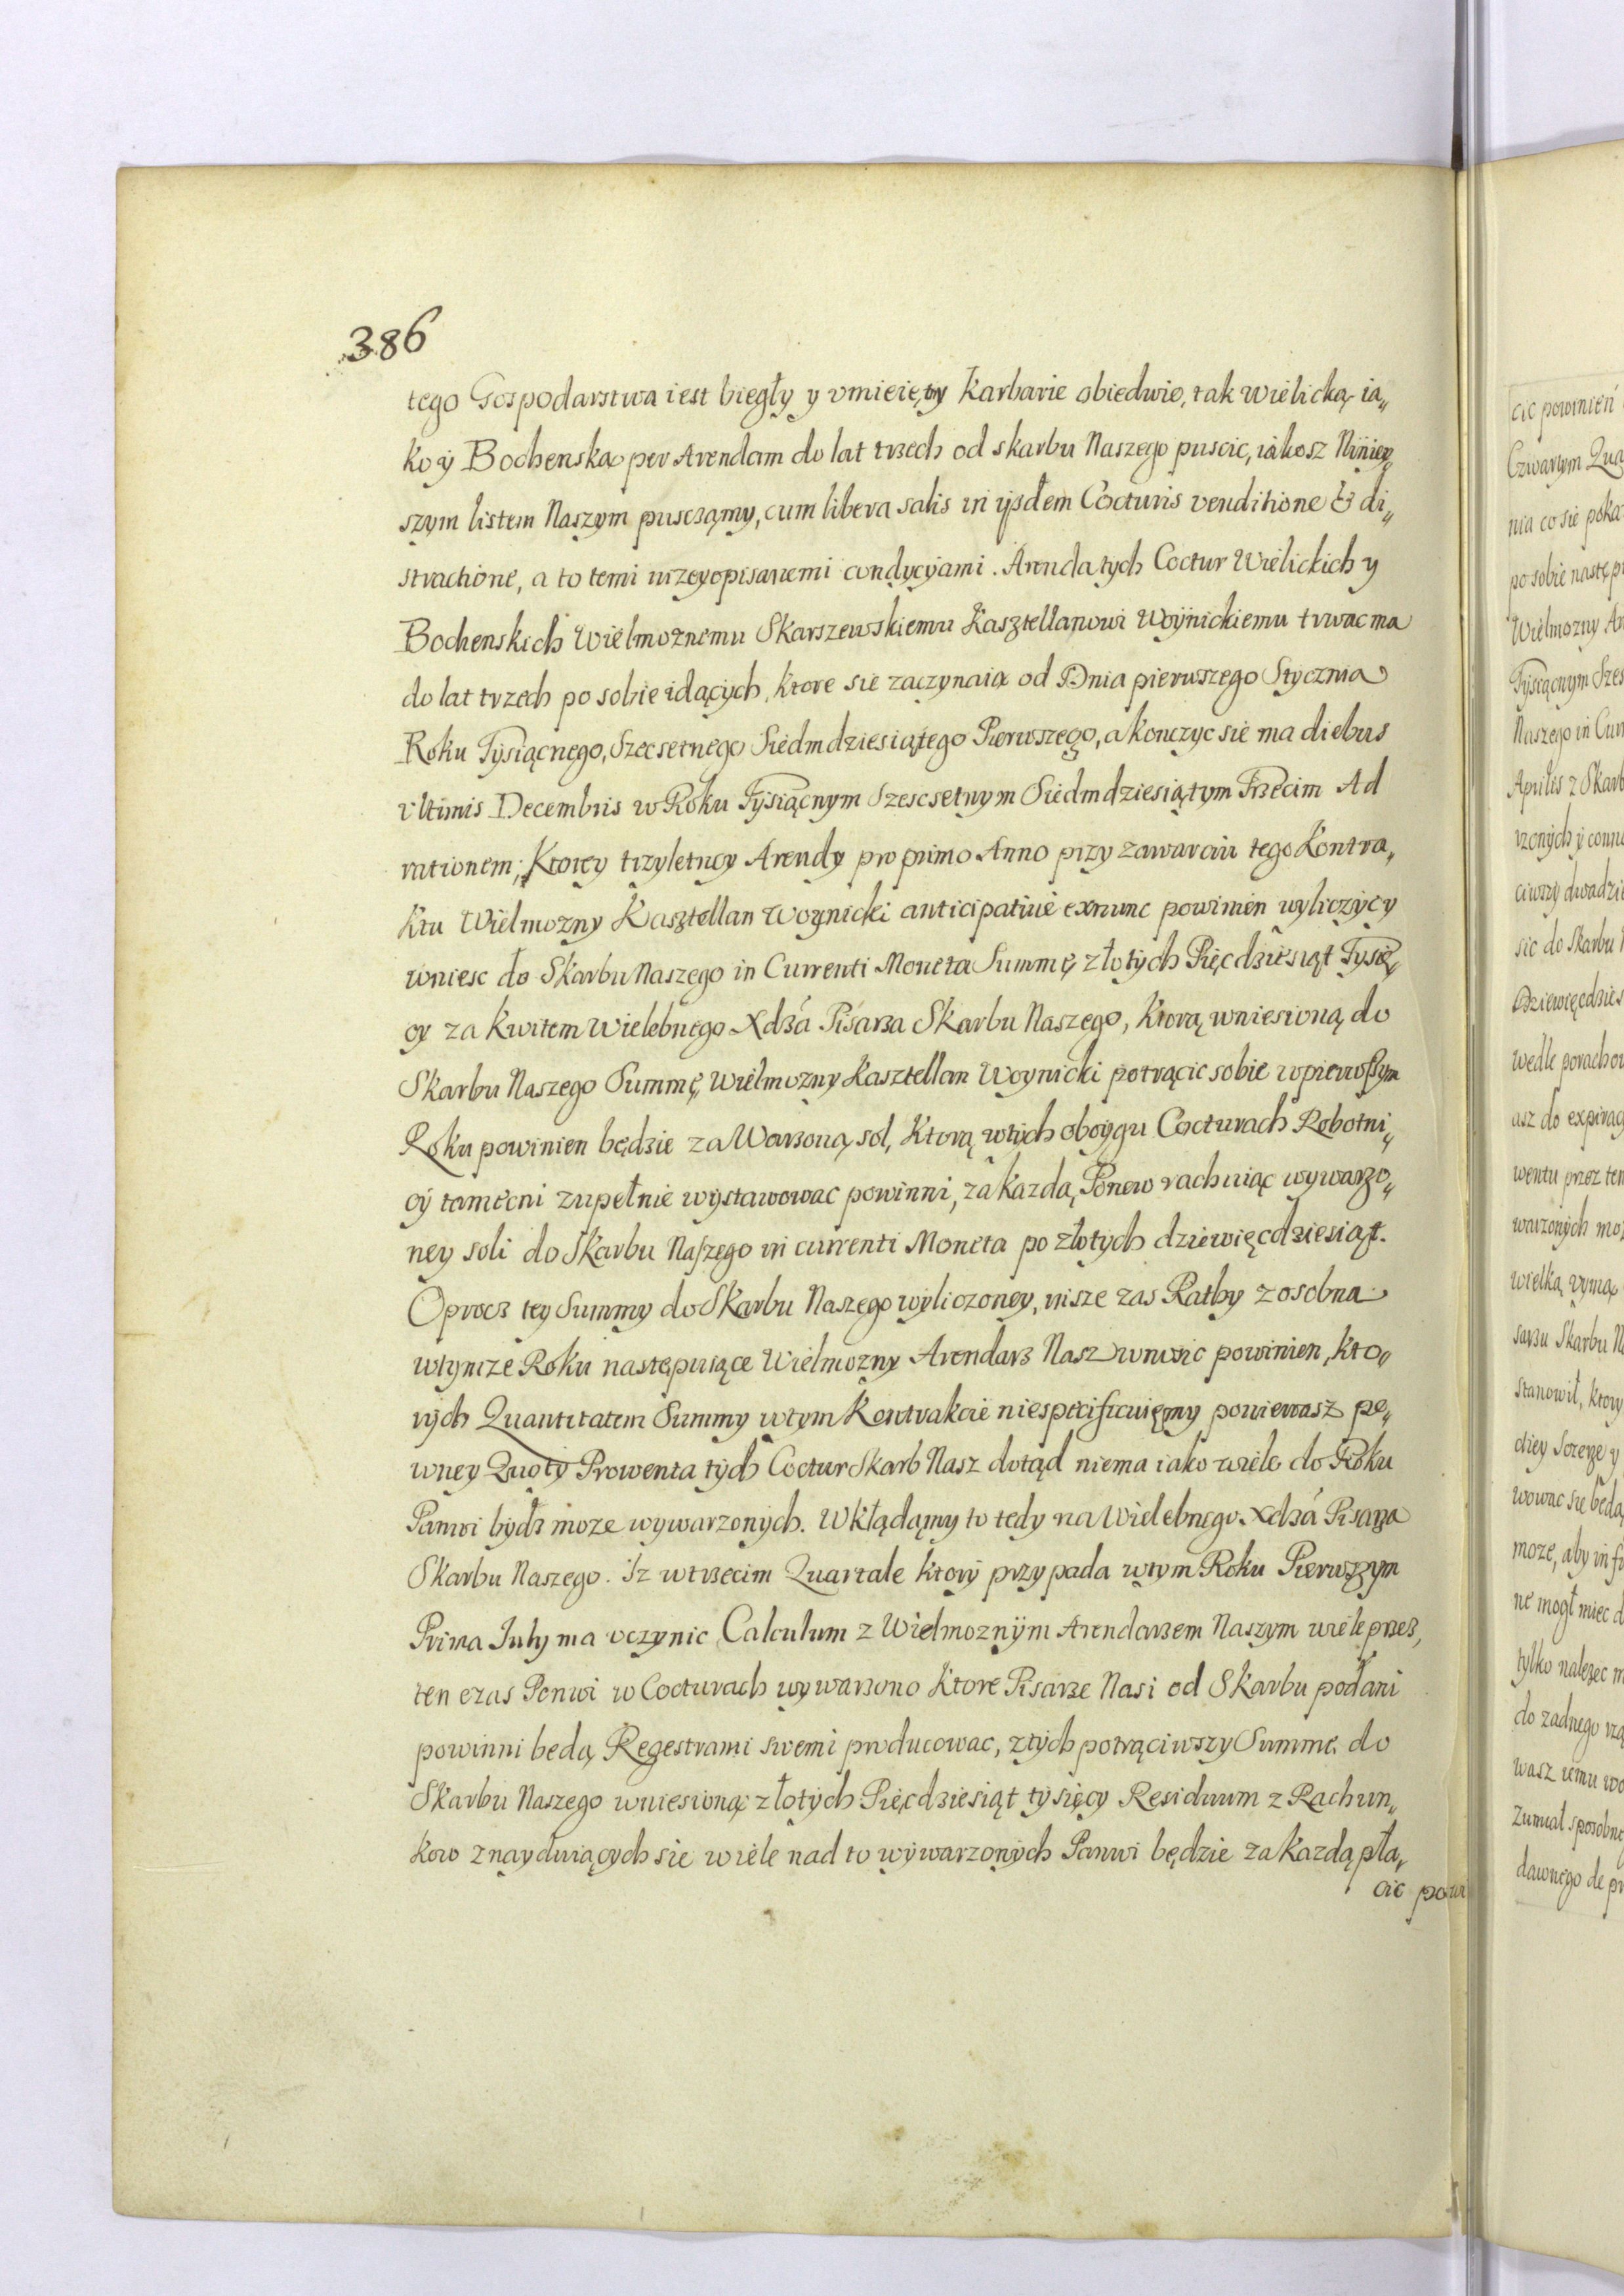 386
tego Gospodarstwa iest biegły y vmieięty Karbarie obiedwie, tak Wielicką ia„
ko y Bochenska per Arendam do lat trzech od skarbu Naszego puscic, iakosz Niniey„
szym listem Naszym pusczamy, cum libera salis in ijsdem Cocturis venditione & di„
stractione, a to temi nizeyopisanemi condycyami. Arenda tych Coctur Wielickich y
Bochenskich Wielmoznemu Skarszewskiemu Kasztellanowi Woynickiemu trwac ma
do lat trzech po sobie idących, ktore sie zaczynaią od Dnia pierwszego Stycznia
Roku Tysiącnego, Szescsetnego Siedmdziesiątego Pierwszego, a konczyc sie ma diebus
vltimis Decembris w Roku Tysiącnym Szescsetnym Siedmdziesiątym Trzecim Ad
rationem, Ktorey trzyletney Arendy pro primo Anno przy zawarciu tego Kontra„
ktu Wielmozny Kasztellan Woynicki anticipative exnunc powinien wyliczyc y
wniesc do Skarbu Naszego in Currenti Moneta Summę złotych Pięcdziesiąt Tysię„
cy za kwitem Wielebnego Xdza Pisarza Skarbu Naszego, Ktorą wniesioną do
Skarbu Naszego Summę, Wielmozny Kasztellan Woynicki potrącic sobie w pierwszym
Roku powinien będzie za Warzoną sol, Ktorą w tych oboygu Cocturach Robotni„
cy tameczni zupełnie wystawowac powinni, za kazdą Ponew rachuiąc wywarzo„
ney soli do Skarbu Naszego in currenti Moneta po złotych dziewięcdziesiąt.
Oprocz tey Summy do Skarbu Naszego wyliczoney, insze zas Rathy z osobna
wtymze Roku nastepuiące Wielmozny Arendarz Nasz wnosic powinien, kto„
rych Quantitatem Summy w tym Kontrakcie niespecificuięmy poniewasz pe„
wney Quoty Prowenta tych Coctur Skarb Nasz dotąd niema iako wiele do Roku
Panwi bydz moze wywarzonych. Wkładąmy to tedy na Wielebnego Xdza Pisarza
Skarbu Naszego. Iz w trzecim Quartale ktory przypada w tym Roku Pierwszym
Prima July ma vczynic Calculum z Wielmoznym Arendarzem Naszym wiele przez
ten czas Penwi w Cocturach wywarzono Ktore Pisarze Nasi od Skarbu podani
powinni bedą Regestrami swemi producowac, z tych potrąciwszy Summe do
Skarbu Naszego wniesioną złotych Pięcdziesiąt tysięcy Residuum z Rachun„
kow znayduiących sie wiele nad to wywarzonych Panwi będzie za kazdą pła„
cic powi
cic powinien
Czwartym Qua
nia co sie poka
po sobie następu
Wielmozny Ar
Tysiącnym Szes
Naszego in Curr
Aprilis z Skarb
rzonych y conn
ciwszy dwadzie
sie do Skarbu N
Dziewięcdzies
wedle porachow
asz do expirac
wentu przez ten
warzonych mo
wielką vymą
sarzu Skarbu Na
stanowił, ktory
wowac sie będą
moze, aby in fu
ne mogł miec d
tylko nalezec m
do zadnego rzą
wasz iemu wo
zumiał sposobne
dawnego de pr